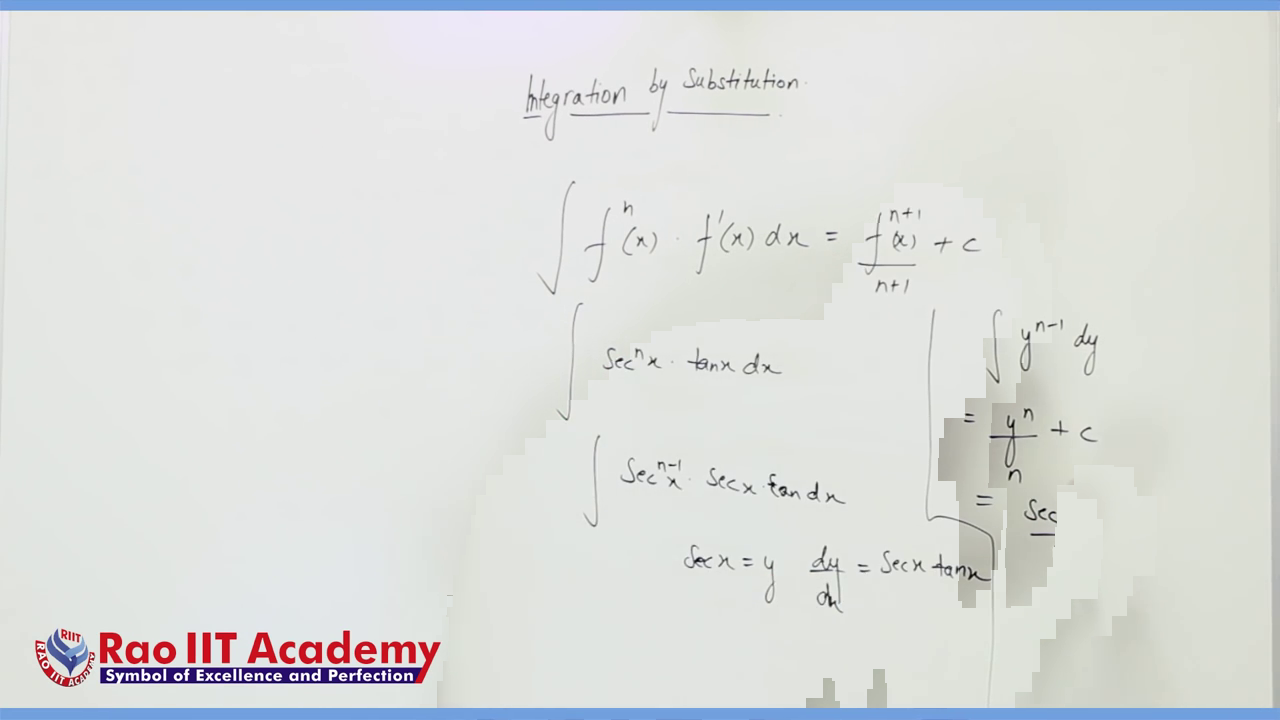 Integration by Substitution.
∫ fⁿ(x) · f'(x) dx = fⁿ⁺¹(x) / n+1 + c
∫ Secⁿx · tanx dx
∫ Secⁿ⁻¹x · Secx · tan dx
Secx = y dy/dx = Secx tanx
∫ yⁿ⁻¹ dy
= yⁿ/n + c
= Sec
RIIT
RAO IIT ACADEMY
Rao IIT Academy
Symbol of Excellence and Perfection